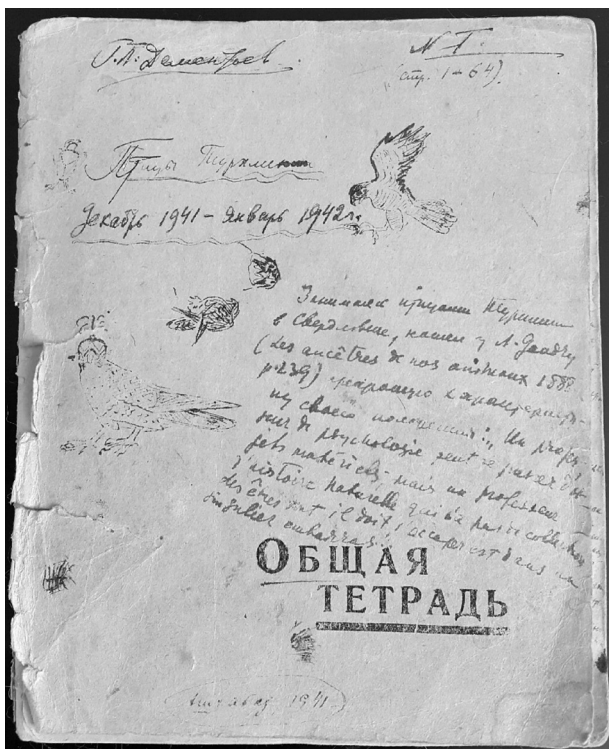 Г.П. Дементьев.
N I.
(стр. 1 – 64)
Птицы Туркмении
Декабрь 1941 – январь 1942 г.
Занимаясь птицами Туркмении
в Свердловске, нашел у А. Gaudry
(Les ancêtres de nos animaux 1888
p. 239) прекрасную
ну своего положения: „Un profes-
seur de psychologie peut se passer d'ob-
jets matériels, mais un professeur
d'histoire naturelle qui n'a pas de collections
des êtres dont il doit s'occuper est dans un
singulier embarras"
ОБЩАЯ
ТЕТРАДЬ
1941